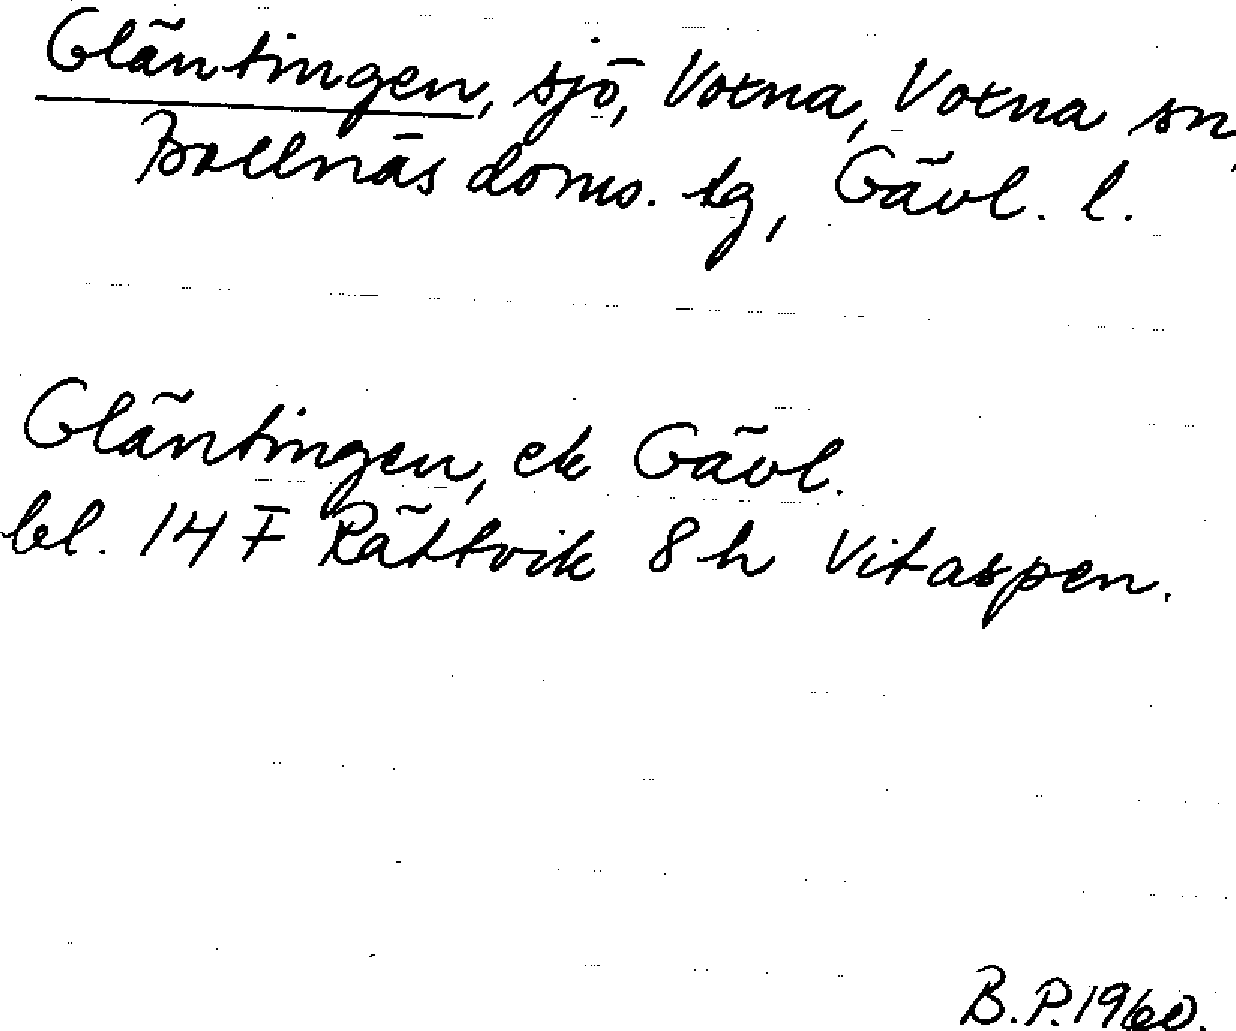 Gläntingen, sjö, Voxna, Voxna sn,
Bollnäs doms. tg, Gävl. l.
Gläntingen, ek Gävl.
bl. 14 F Rättvik 8 h Vitaspen.
B.P. 1960.